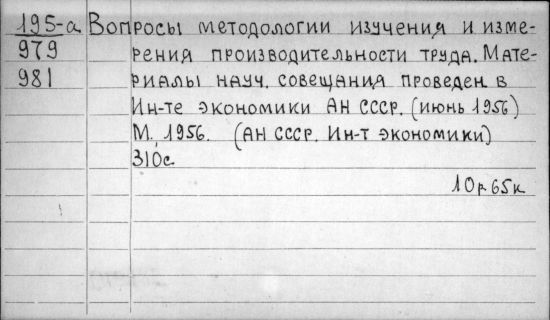 195-а Вопросы методологии изучения и изме-
979 рения производительности труда. Мате-
981 риалы науч. совещания проведен. в
Ин-те экономики АН СССР. (июнь 1956)
М., 1956. (АН СССР. Ин-т экономики)
310с.
10р65к